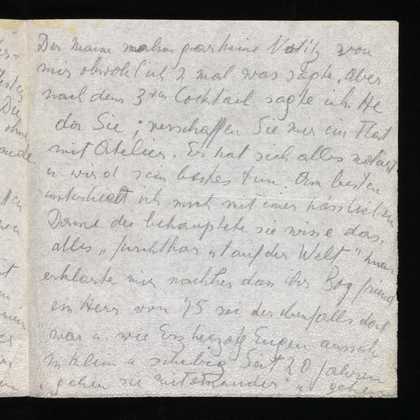 Der meine nahm gar keine Notiz von
mir obwohl ich 2 mal was sagte, aber
nach dem 3ten Cocktail sagte ich He
da Sie; verschaffen Sie mir ein Flat
mit Atelier. Er hat sich alles notiert
u wird sein bestes tun. Am besten
unterhielt ich mich mit einer hässlichen
Dame die behauptete sie wisse dass
alles "furchtbar ist auf der Welt"
erklärte mir nachher dass ihr Boyfriend
ein Herr von 75 sei der ebenfalls dort
war u. wie Erzherzog Eugen aussah
in klein u schäbig. Seit 20 Jahren
"gehen sie miteinander" u gehen